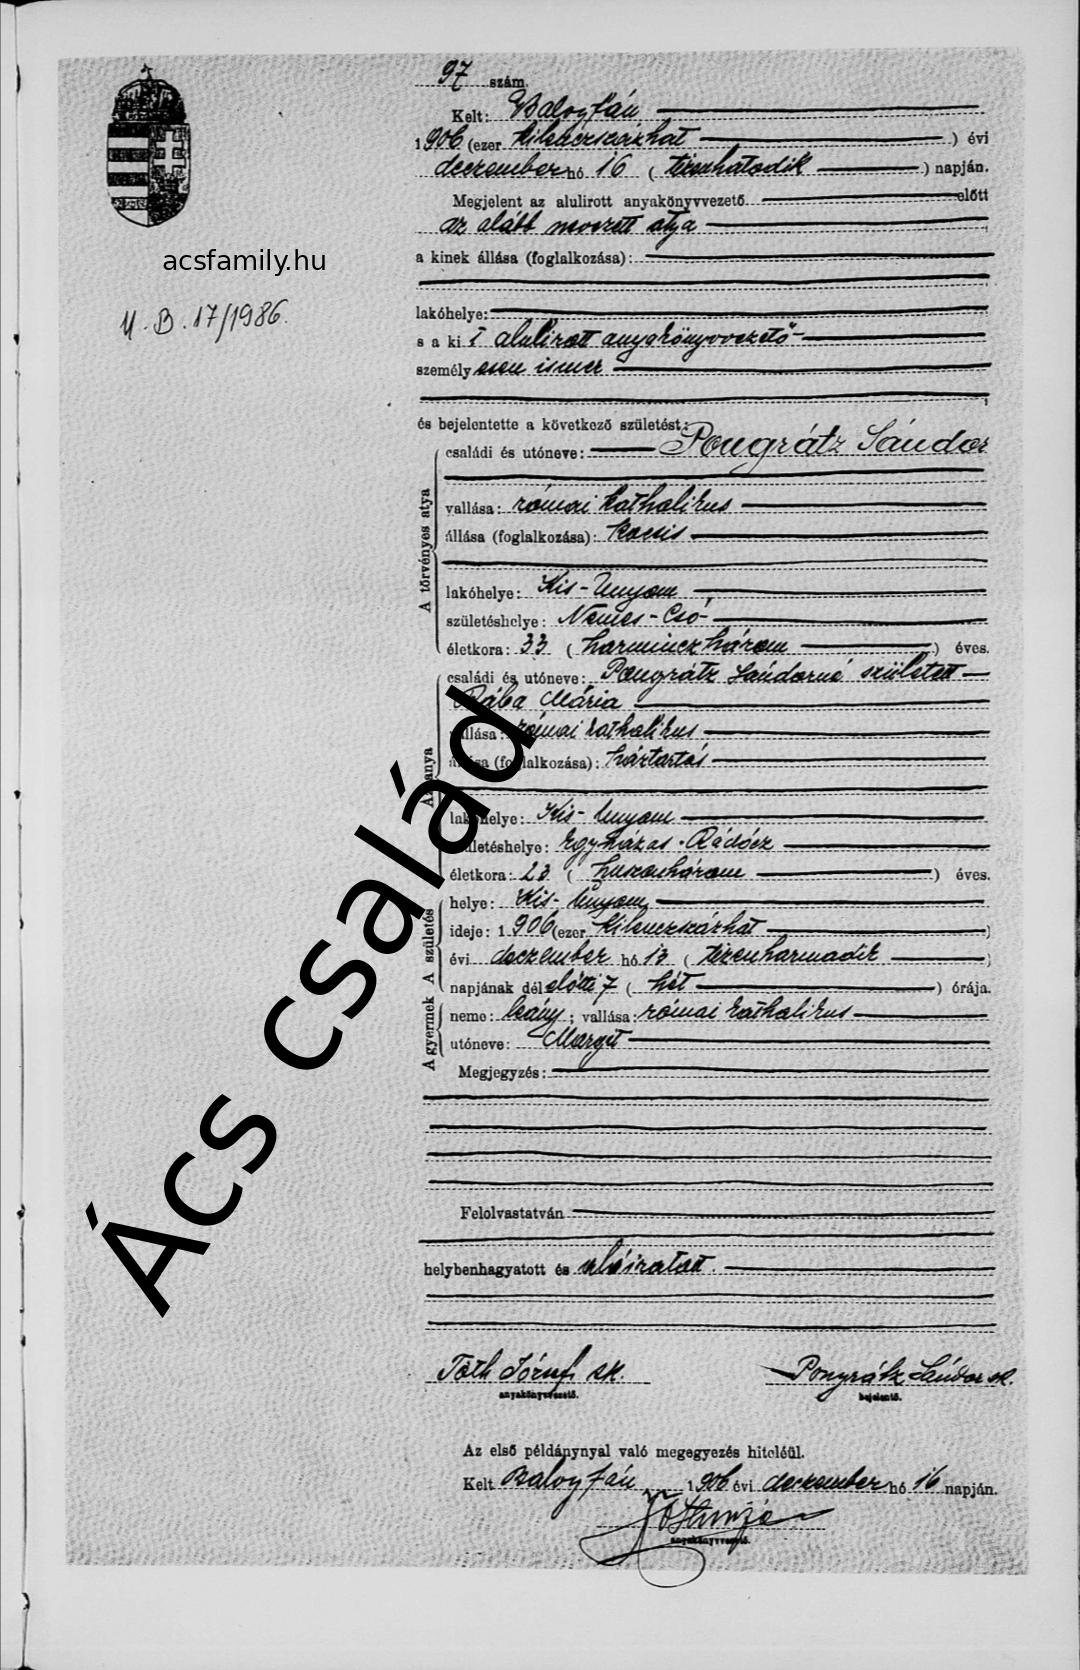 97 szám.
Kelt: Balogfán
1906 (ezer kilenczszázhat ) évi
deczember hó 16 ( tizenhatodik ) napján.
Megjelent az alulirott anyakönyvvezető előtt
az alább nevezett atya
a kinek állása (foglalkozása):
lakóhelye:
s a ki t alulirott anyakönyvvezető
személyesen ismer
és bejelentette a következő születést:
A törvényes atya
családi és utóneve: Pongrátz Sándor
vallása: római katholikus
állása (foglalkozása): kocsis
lakóhelye: Kis-Unyom
születéshelye: Nemes-Csó
életkora: 33 ( harminczhárom ) éves.
Az anya
családi és utóneve: Pongrátz Sándorné született
Rába Mária
vallása: római katholikus
állása (foglalkozása): háztartás
lakóhelye: Kis-Unyom
születéshelye: Egyházas-Rádócz
életkora: 23 ( huszonhárom ) éves.
A születés
helye: Kis-Unyom
ideje: 1906 (ezer kilenczszázhat )
évi deczember hó 13 ( tizenharmadik )
napjának délelőtti 7 ( hét ) órája.
A gyermek
neme: leány; vallása: római katholikus
utóneve: Margit
Megjegyzés:
Felolvastatván
helybenhagyatott és aláiratott.
Tóth József sk.
anyakönyvvezető.
Pongrátz Sándor sk.
bejelentő.
Az első példánynyal való megegyezés hiteléül.
Kelt Balogfán 1906 évi deczember hó 16 napján.
anyakönyvvezető.
acsfamily.hu
U. B. 17/1986.
Ács család